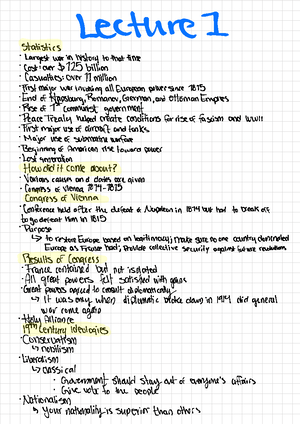 Lecture 1
Statistics
· Largest war in history to that time
· Cost: over $225 billion
· Casualties: over 37 million
· First major war involving all European powers since 1815
· End of Hapsburg, Romanov, German, and Ottoman Empires
· Rise of 1st communist government
· Peace Treaty helped create conditions for rise of fascism and WWII
· First major use of aircraft and tanks
· Major use of submarine warfare
· Beginning of American rise toward power
· Lost generation
How did it come about?
· Various causes and dates are given
· Congress of Vienna 1814-1815
Congress of Vienna
· Conference held after the defeat of Napolean in 1814 but had to break off
to go defeat him in 1815
· Purpose
↳ to restore Europe based on legitimacy; make sure no one country dominated
Europe as France had; provide collective security against future revolutions
Results of Congress
· France contained but not isolated
· All great powers felt satisfied with gains
· Great powers agreed to consult diplomatically
↳ It was only when diplomatic broke down in 1914 did general
war come again
· Holy Alliance
19th Century Ideologies
· Conservatism
↳ nobilism
· Liberalism
↳ classical
· Government should stay out of everyone's affairs
· Give vote to the people
· Nationalism
↳ Your nationality is superior than others